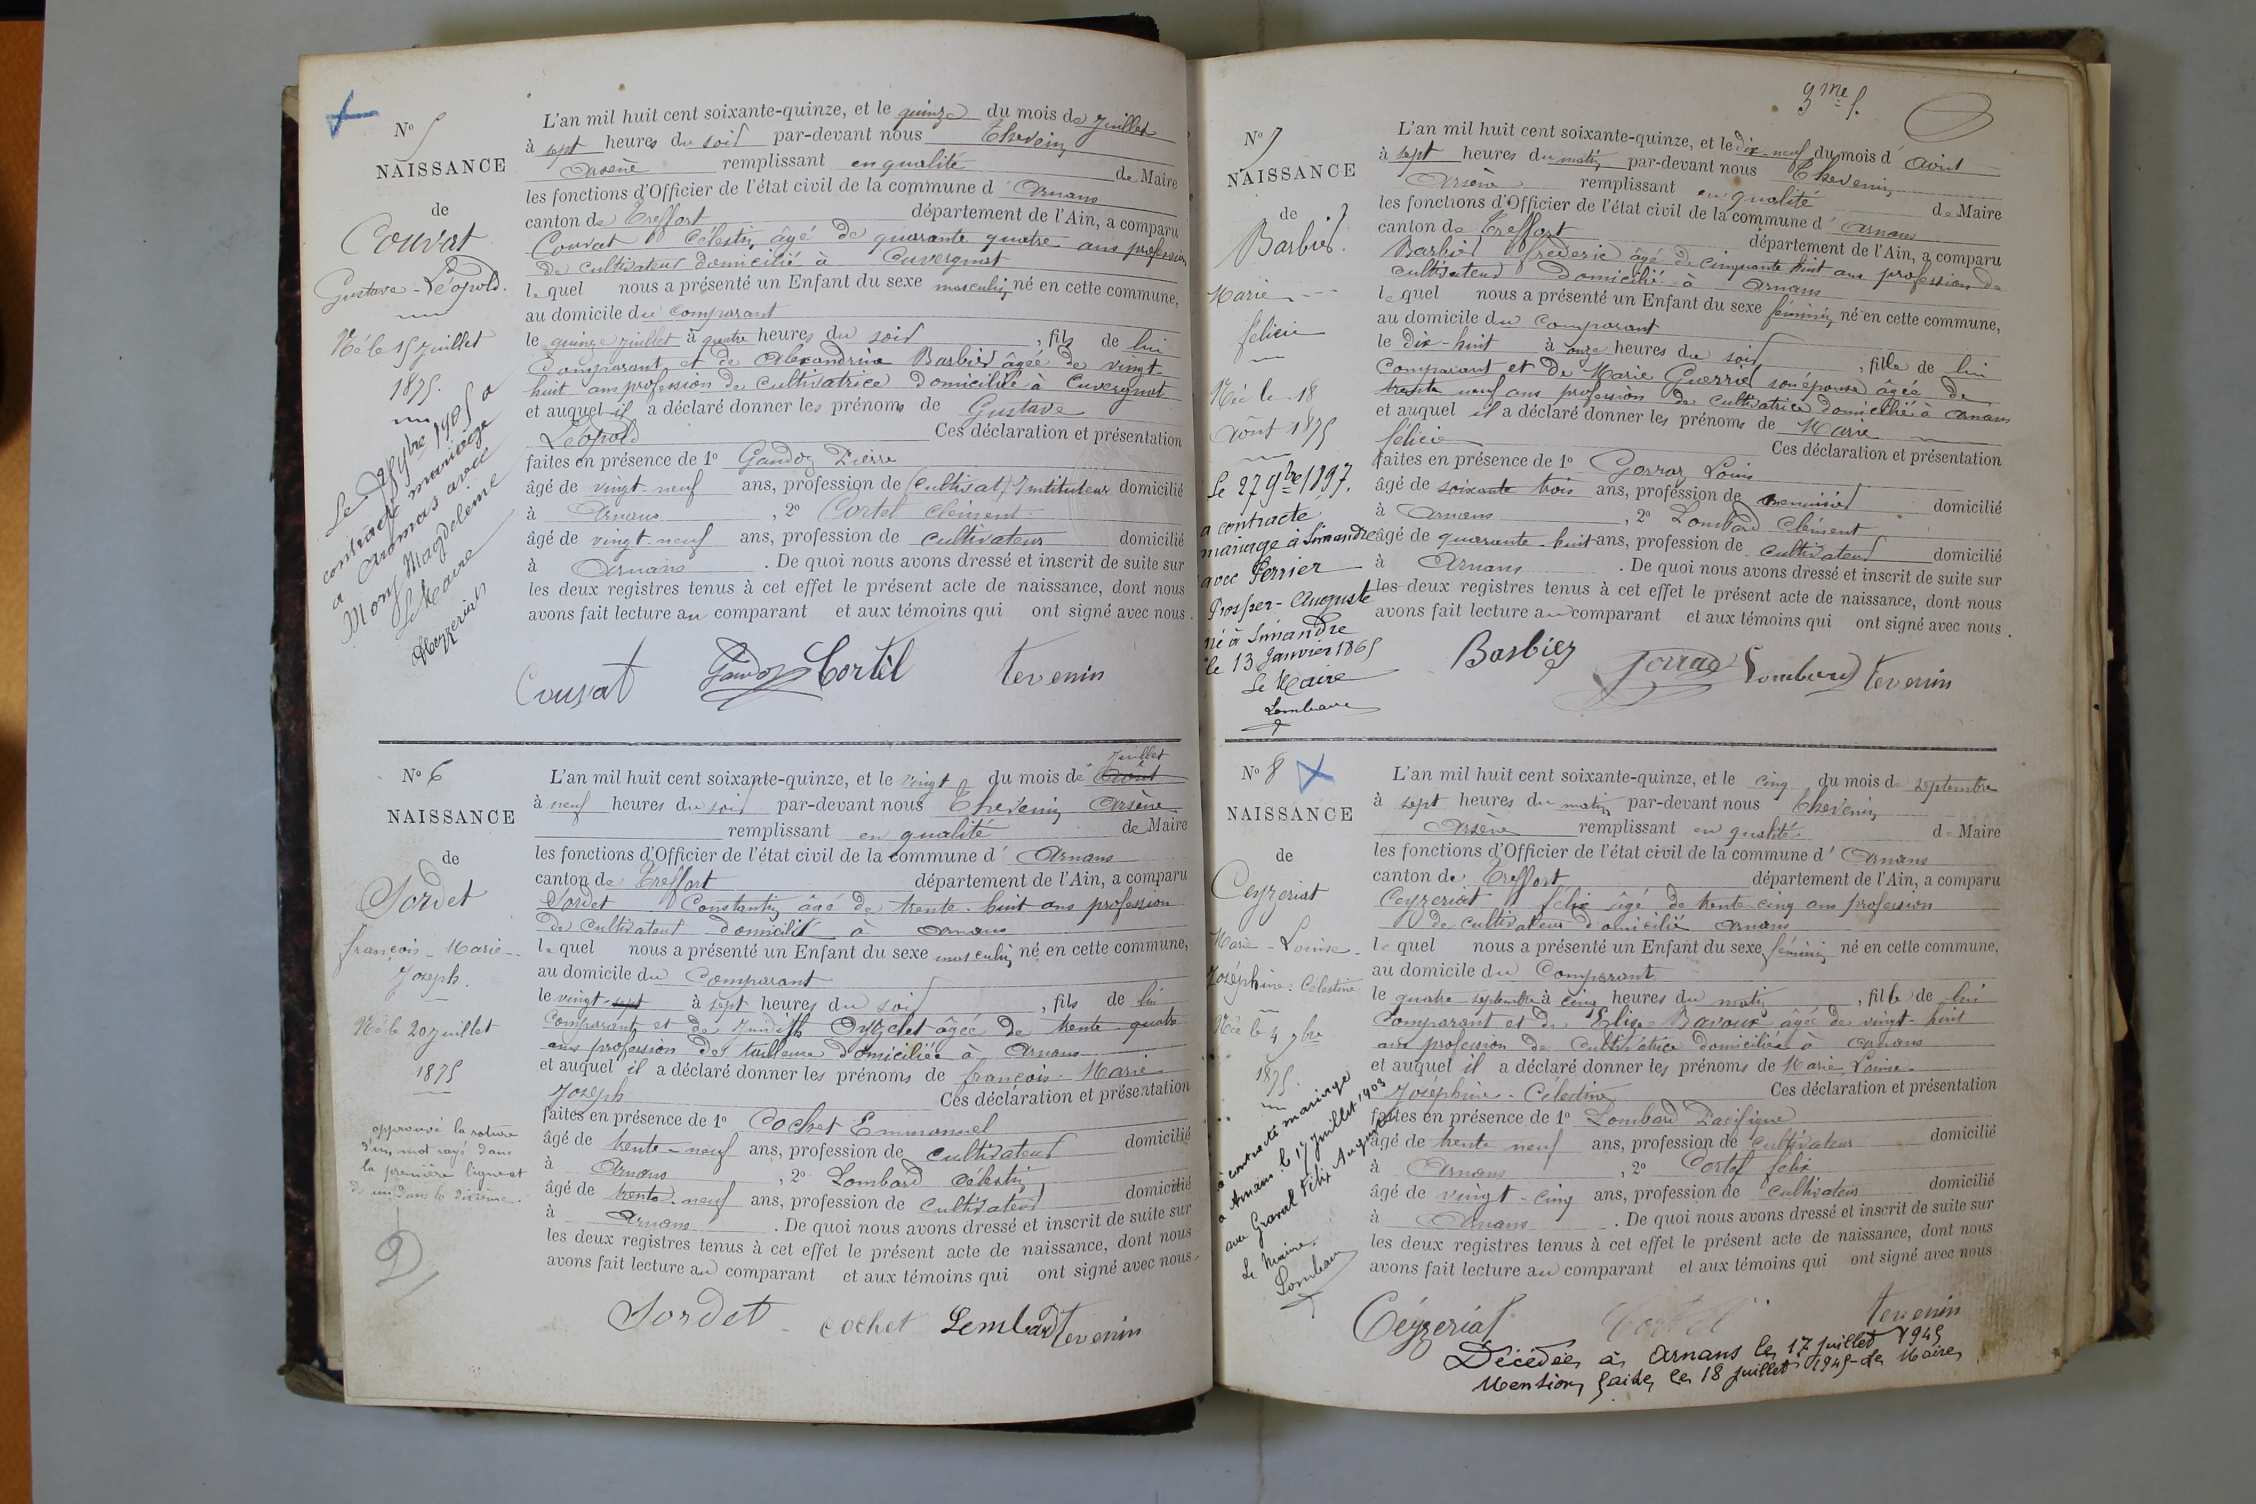 N° 5
NAISSANCE
de
Couvat
Gustave-Léopold.
Né le 15 juillet
1875.
Le 28 7bre 1905 a
contracté mariage
à Aromas avec
Magdeleine
Le Maire
L'an mil huit cent soixante-quinze, et le quinze du mois de juillet
à sept heures du soir par-devant nous Thevenin
Arsène remplissant en qualité de Maire
les fonctions d'Officier de l'état civil de la commune d'Arnans
canton de Treffort département de l'Ain, a comparu
Couvat Célestin âgé de quarante quatre ans profession
de cultivateur domicilié à Cuvergnat
lequel nous a présenté un Enfant du sexe masculin né en cette commune,
au domicile du comparant
le quinze juillet à quatre heures du soir, fils de lui
Comparant et de Alexandrine Barbier âgée de vingt
huit ans profession de cultivatrice domiciliée à Cuvergnat
et auquel il a déclaré donner les prénoms de Gustave
Léopold Ces déclaration et présentation
faites en présence de 1° Gandoz Pierre
âgé de vingt-neuf ans, profession de (cultivat) Instituteur domicilié
à Arnans, 2° Cortel clément
âgé de vingt-neuf ans, profession de cultivateur domicilié
à Arnans. De quoi nous avons dressé et inscrit de suite sur
les deux registres tenus à cet effet le présent acte de naissance, dont nous
avons fait lecture au comparant et aux témoins qui ont signé avec nous.
Couvat Gandoz Cortel tevenin
N° 6
NAISSANCE
de
Sordet
françois-Marie-
Joseph.
Né le 20 juillet
1875
approuvé la rature
d'un mot rayé dans
la première ligne et
de un dans la dixième.
L'an mil huit cent soixante-quinze, et le vingt du mois de Août juillet
à neuf heures du soir par-devant nous Thevenin Arsène
remplissant en qualité de Maire
les fonctions d'Officier de l'état civil de la commune d'Arnans
canton de Treffort département de l'Ain, a comparu
Sordet Constantin âgé de trente-huit ans profession
de cultivateur domicilié à Arnans
lequel nous a présenté un Enfant du sexe masculin né en cette commune,
au domicile du Comparant
le vingt-sept à sept heures du soir, fils de lui
Comparant et de âgée de trente-quatre
ans profession de tailleuse domiciliée à Arnans
et auquel il a déclaré donner les prénoms de françois-Marie
Joseph Ces déclaration et présentation
faites en présence de 1° Cochet Emmanuel
âgé de trente-neuf ans, profession de cultivateur domicilié
à Arnans, 2° Lombard Célestin
âgé de trente-neuf ans, profession de cultivateur domicilié
à Arnans. De quoi nous avons dressé et inscrit de suite sur
les deux registres tenus à cet effet le présent acte de naissance, dont nous
avons fait lecture au comparant et aux témoins qui ont signé avec nous.
Sordet cochet Lombard tevenin
3me f.
N° 7
NAISSANCE
de
Barbier.
Marie
félicie
Née le 18
Août 1875
Le 27 9bre 1897.
a contracté
mariage à Simandre
avec Perrier
Prosper-Auguste
né à Simandre
le 13 Janvier 1865
Le Maire
L'an mil huit cent soixante-quinze, et le dix-neuf du mois d'Août
à sept heures du matin par-devant nous Thevenin
Arsène remplissant en qualité de Maire
les fonctions d'Officier de l'état civil de la commune d'Arnans
canton de Treffort département de l'Ain, a comparu
Barbier frédéric âgé de cinquante huit ans profession de
cultivateur domicilié à Arnans
lequel nous a présenté un Enfant du sexe féminin né en cette commune,
au domicile du Comparant
le dix-huit à onze heures du soir, fille de lui
Comparant et de Marie Guerrier son épouse âgée de
trente neuf ans profession de cultivatrice domiciliée à Arnans
et auquel il a déclaré donner les prénoms de Marie
félicie Ces déclaration et présentation
faites en présence de 1° Gorraz Louis
âgé de soixante trois ans, profession de menuisier domicilié
à Arnans, 2° Lombard Clément
âgé de quarante-huit ans, profession de cultivateur domicilié
à Arnans. De quoi nous avons dressé et inscrit de suite sur
les deux registres tenus à cet effet le présent acte de naissance, dont nous
avons fait lecture au comparant et aux témoins qui ont signé avec nous.
Barbier Gorraz Lombard tevenin
N° 8
NAISSANCE
de
Ceyzeriat
Marie-Louise
Joséphine-Célestine
Née le 4 7bre
1875.
a contracté mariage
à Arnans le 17 juillet 1903
avec Graval Félix Auguste
Le Maire
L'an mil huit cent soixante-quinze, et le cinq du mois de septembre
à sept heures du matin par-devant nous Thevenin
Arsène remplissant en qualité de Maire
les fonctions d'Officier de l'état civil de la commune d'Arnans
canton de Treffort département de l'Ain, a comparu
Ceyzeriat félix âgé de trente-cinq ans profession
de cultivateur domicilié Arnans
lequel nous a présenté un Enfant du sexe féminin né en cette commune,
au domicile du Comparant
le quatre septembre à cinq heures du matin, fille de lui
Comparant et de Elise Bavoux âgée de vingt-huit
ans profession de cultivatrice domiciliée à Arnans
et auquel il a déclaré donner les prénoms de Marie Louise
Joséphine-Célestine Ces déclaration et présentation
faites en présence de 1° Lombard Pacifique
âgé de trente neuf ans, profession de cultivateur domicilié
à Arnans, 2° Cortel félix
âgé de vingt-cinq ans, profession de cultivateur domicilié
à Arnans. De quoi nous avons dressé et inscrit de suite sur
les deux registres tenus à cet effet le présent acte de naissance, dont nous
avons fait lecture au comparant et aux témoins qui ont signé avec nous
Céyzeriat Cortel tevenin
Décédée à Arnans le 17 juillet 1945
Mention faite le 18 juillet 1945-Le Maire